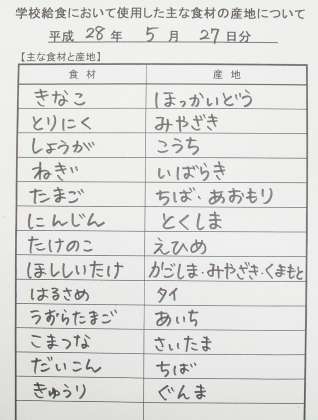 学校給食において使用した主な食材の産地について
平成 28 年 5 月 27 日分
【主な食材と産地】
食 材 産 地
きなこ ほっかいどう
とりにく みやざき
しょうが こうち
ねぎ いばらき
たまご ちば・あおもり
にんじん とくしま
たけのこ えひめ
ほししいたけ かごしま・みやざき・くまもと
はるさめ タイ
うずらたまご あいち
こまつな さいたま
だいこん ちば
きゅうり ぐんま